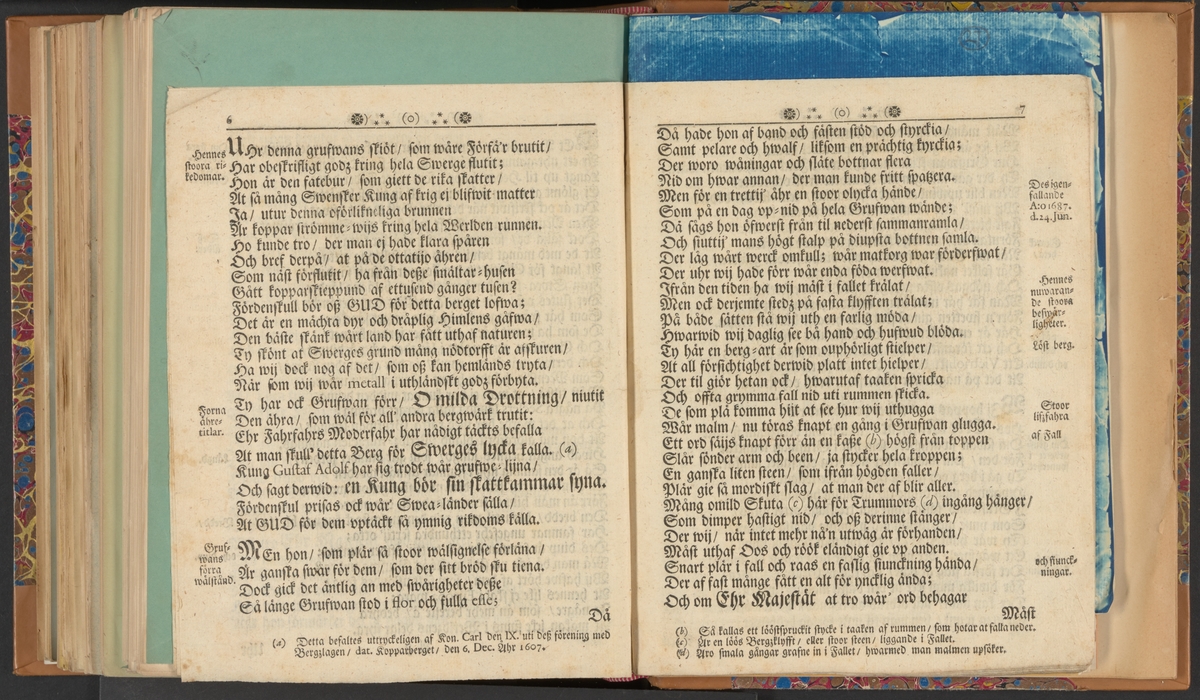 6
Hennes
stoora ri-
kedomar.
UHr denna grufwans skiöt/ som wäre Förfä'r brutit/
Har obeskrifligt godz kring hela Swerge flutit;
Hon är den fatebur/ som giett de rika skatter/
At så mång Swensker Kung af krig ej blifwit matter
Ja/ utur denna oförlikneliga brunnen
Är koppar strömme-wijs kring hela Werlden runnen.
Ho kunde tro/ der man ej hade klara spåren
Och bref derpå/ at på de ottatijo åhren/
Som näst förflutit/ ha från deße smältar-husen
Gått kopparskieppund af ettusend gånger tusen?
Fördenskull bör oß GUD för detta berget lofwa;
Det är en mächta dyr och dräplig Himlens gåfwa/
Den bäste skänk wårt land har fått uthaf naturen;
Ty skönt at Swerges grund mång nödtorfft är afskuren/
Ha wij dock nog af det/ som oß kan hemlånds tryta/
När som wij wår metall i uthländskt godz förbyta.
Forna
ähre-
titlar.
Ty har ock Grufwan förr/ O milda Drottning/ niutit
Den ähra/ som wäl för all' andra bergwärk trutit:
Ehr Fahrfahrs Moderfahr har nådigt täckts befalla
At man skull' detta Berg för Swerges lycka kalla. (a)
Kung Gustaf Adolf har sig trodt wår grufwe-lijna/
Och sagt derwid: en Kung bör sin skattkammar syna.
Fördenskul prisas ock wår' Swea-länder sälla/
At GUD för dem uptäckt så ymnig rikdoms källa.
Gruf-
wans
förra
wälstånd.
MEn hon/ som plär så stoor wälsignelse förläna/
Är ganska swår för dem/ som der sitt bröd sku tiena.
Dock gick det äntlig an med swårigheter deße
Så länge Grufwan stod i flor och fulla esse;
Då
(a) Detta befaltes uttryckeligen af Kon. Carl den IX. uti deß förening med
Bergzlagen/ dat. Kopparberget/ den 6. Dec. Åhr 1607.
7
Då hade hon af band och fästen stöd och styrckia/
Samt pelare och hwalf/ liksom en prächtig kyrckia;
Der woro wåningar och släte bottnar flera
Nid om hwar annan/ der man kunde fritt spatzera.
Des igen-
fallande
A:o 1687.
d. 24. Jun.
Men för en trettij' åhr en stoor olycka hände/
Som på en dag up-nid på hela Grufwan wände;
Då sågs hon öfwerst från til nederst sammanramla/
Och siuttij' mans högt stalp på diupsta bottnen samla.
Der låg wårt werck omkull; wår matkorg war förderfwat/
Der uhr wij hade förr wår enda föda werfwat.
Hennes
nuwaran-
de stoora
beswär-
ligheter.
Ifrån den tiden ha wij mäst i fallet krålat/
Men ock derjemte stedz på fasta klyfften trålat;
På både sätten stå wij uth en farlig möda/
Hwarwid wij daglig see bå hand och hufwud blöda.
Löst berg.
Ty här en berg-art är som ouphörligt stielper/
At all försichtighet derwid platt intet hielper/
Der til giör hetan ock/ hwarutaf taaken spricka
Och offta grymma fall nid uti rummen skicka.
Stoor
lifzfahra
De som plä komma hijt at see hur wij uthugga
Wår malm/ nu töras knapt en gång i Grufwan glugga.
af Fall
Ett ord säijs knapt förr än en kaße (b) högst från toppen
Slår sönder arm och been/ ja stycker hela kroppen;
En ganska liten steen/ som ifrån högden faller/
Plär gie så mordiskt slag/ at man der af blir aller.
Mång omild Skuta (c) här för Trummors (d) ingång hänger/
Som dimper hastigt nid/ och oß derinne stänger/
Der wij/ när intet mehr nå'n utwäg är förhanden/
Mäst uthaf Oos och röök eländigt gie up anden.
och siunck-
ningar.
Snart plär i fall och raas en faslig siunckning hända/
Der af fast månge fått en alt för yncklig ända;
Och om Ehr Majestät at tro wår' ord behagar
Mäst
(b) Så kallas ett lööstspruckit stycke i taaken af rummen/ som hotar at falla neder.
(c) Är en löös Bergzklyfft/ eller stoor steen/ liggande i Fallet.
(d) Äro smala gångar grafne in i Fallet/ hwarmed man malmen upsöker.